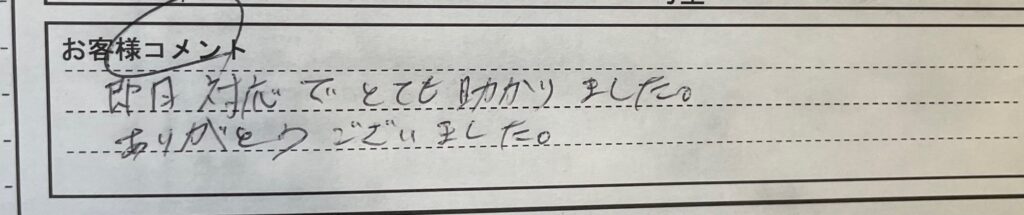 お客様コメント
即日対応でとても助かりました。
ありがとうございました。